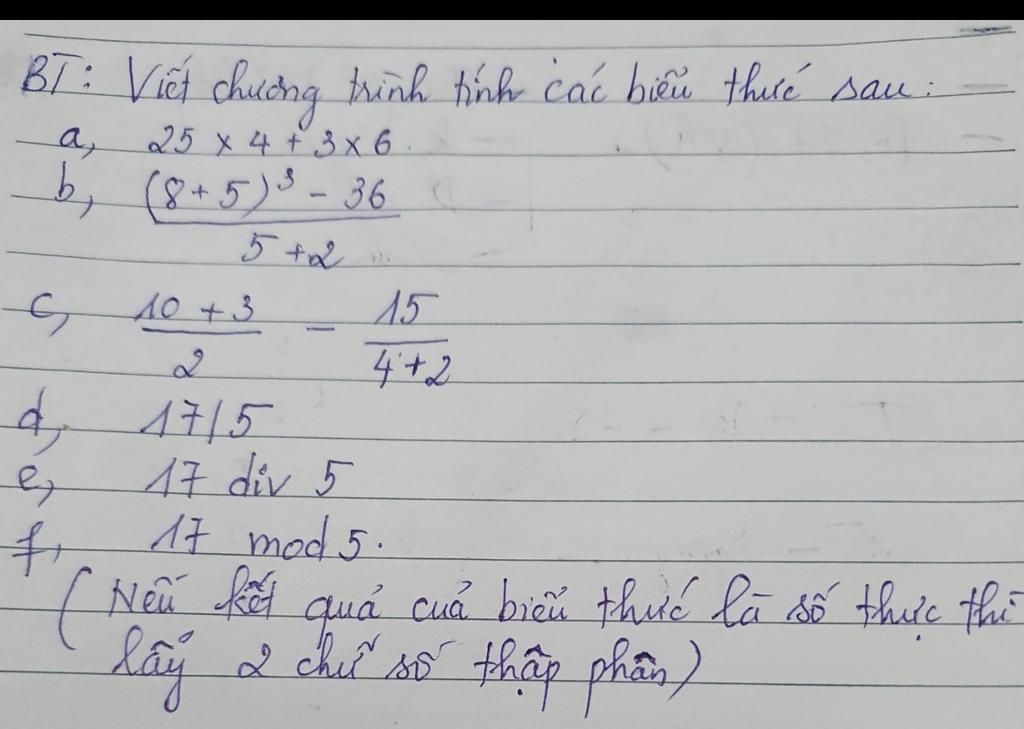 BT: Viết chương trình tính các biểu thức sau:
a, 25 x 4 + 3 x 6.
b, (8 + 5)³ - 36
5 + 2
c, 10 + 3 - 15
2 4 + 2
d, 17/5
e, 17 div 5
f, 17 mod 5.
(Nếu kết quả của biểu thức là số thực thì
lấy 2 chữ số thập phân)